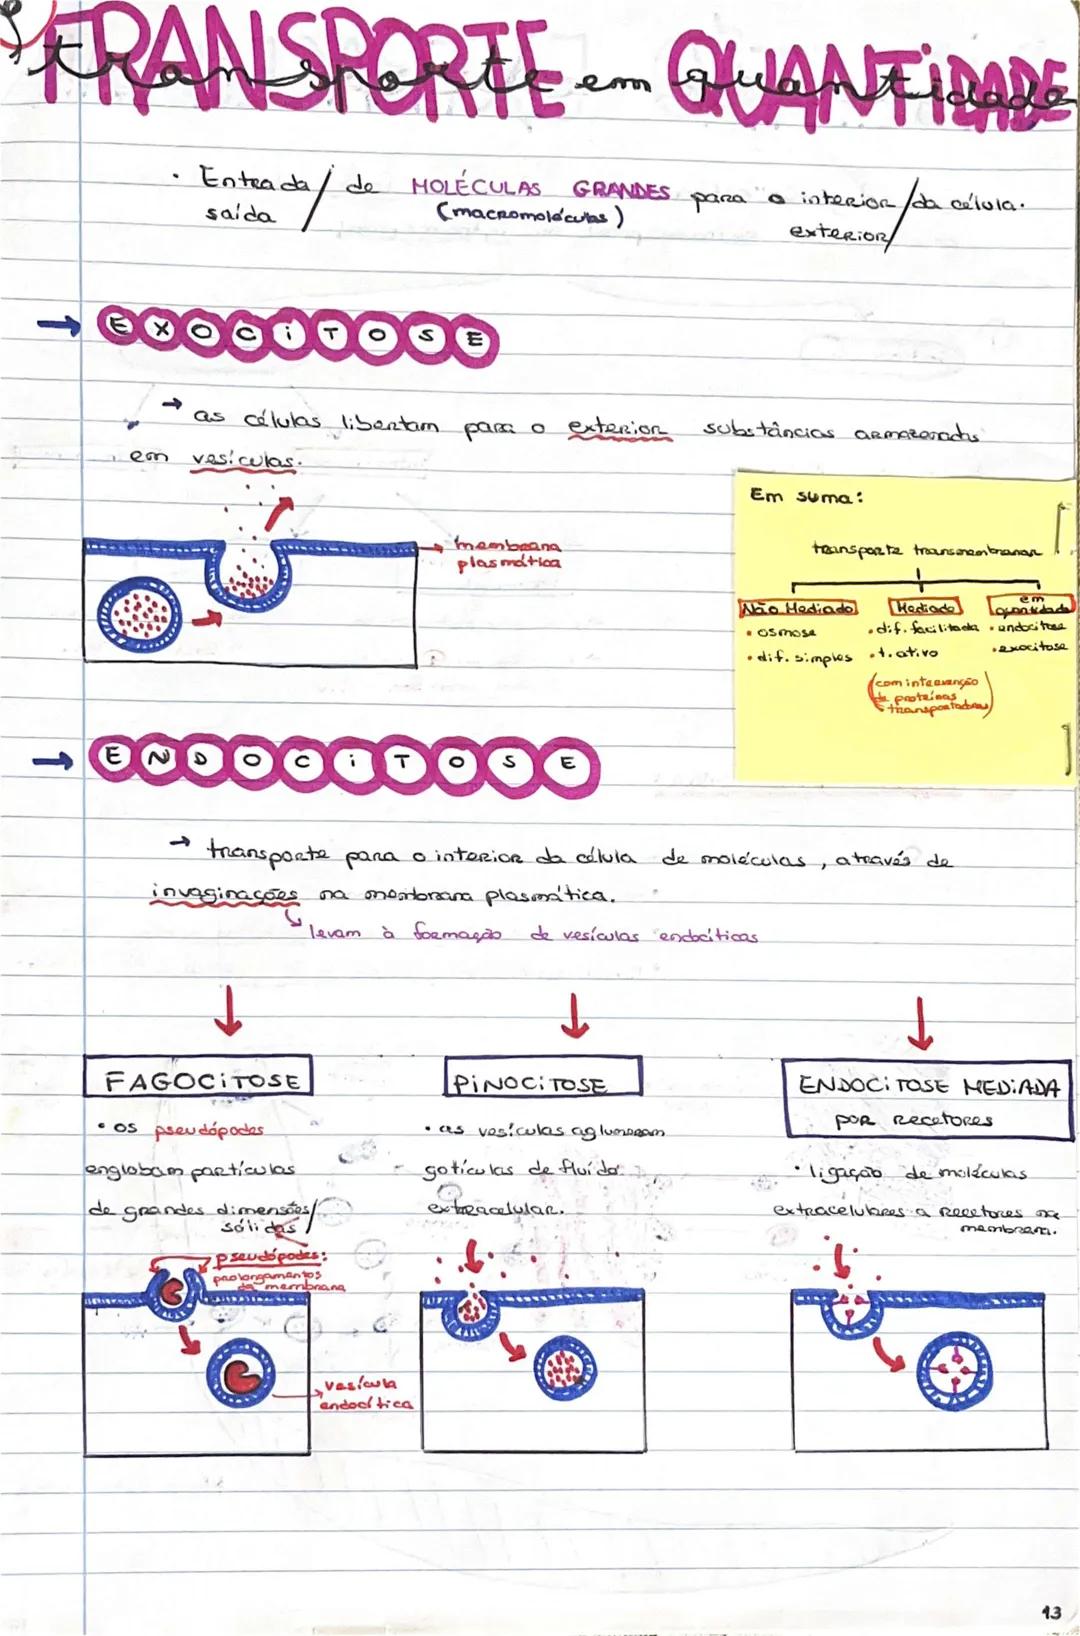 TRANSPORTE QUANTIDADE
transporte em quantidade
• Entrada/ de MOLÉCULAS GRANDES para o interior/da célula.
saída (macromoléculas) exterior/
→ EXOCITOSE
→ as células libertam para o exterior substâncias armazenadas
em vesículas.
membrana
plasmática
Em suma:
transporte transmembranar
Não Mediado
• osmose
• dif. simples
Mediado
• dif. facilitada
• t. ativo
(com intervenção
de proteínas
transportadoras)
em
quantidade
• endocitose
• exocitose
→ ENDOCITOSE
→ transporte para o interior da célula de moléculas, através de
invaginações na membrana plasmática.
levam à formação de vesículas endocíticas
FAGOCITOSE
• os pseudópodes
englobam partículas
de grandes dimensões/
sólidas
pseudópodes:
prolongamentos
da membrana
vesícula
endocítica
PINOCITOSE
• as vesículas aglomeram
gotículas de fluído
extracelular.
ENDOCITOSE MEDIADA
POR RECETORES
• ligação de moléculas
extracelulares a recetores na
membrana.
13